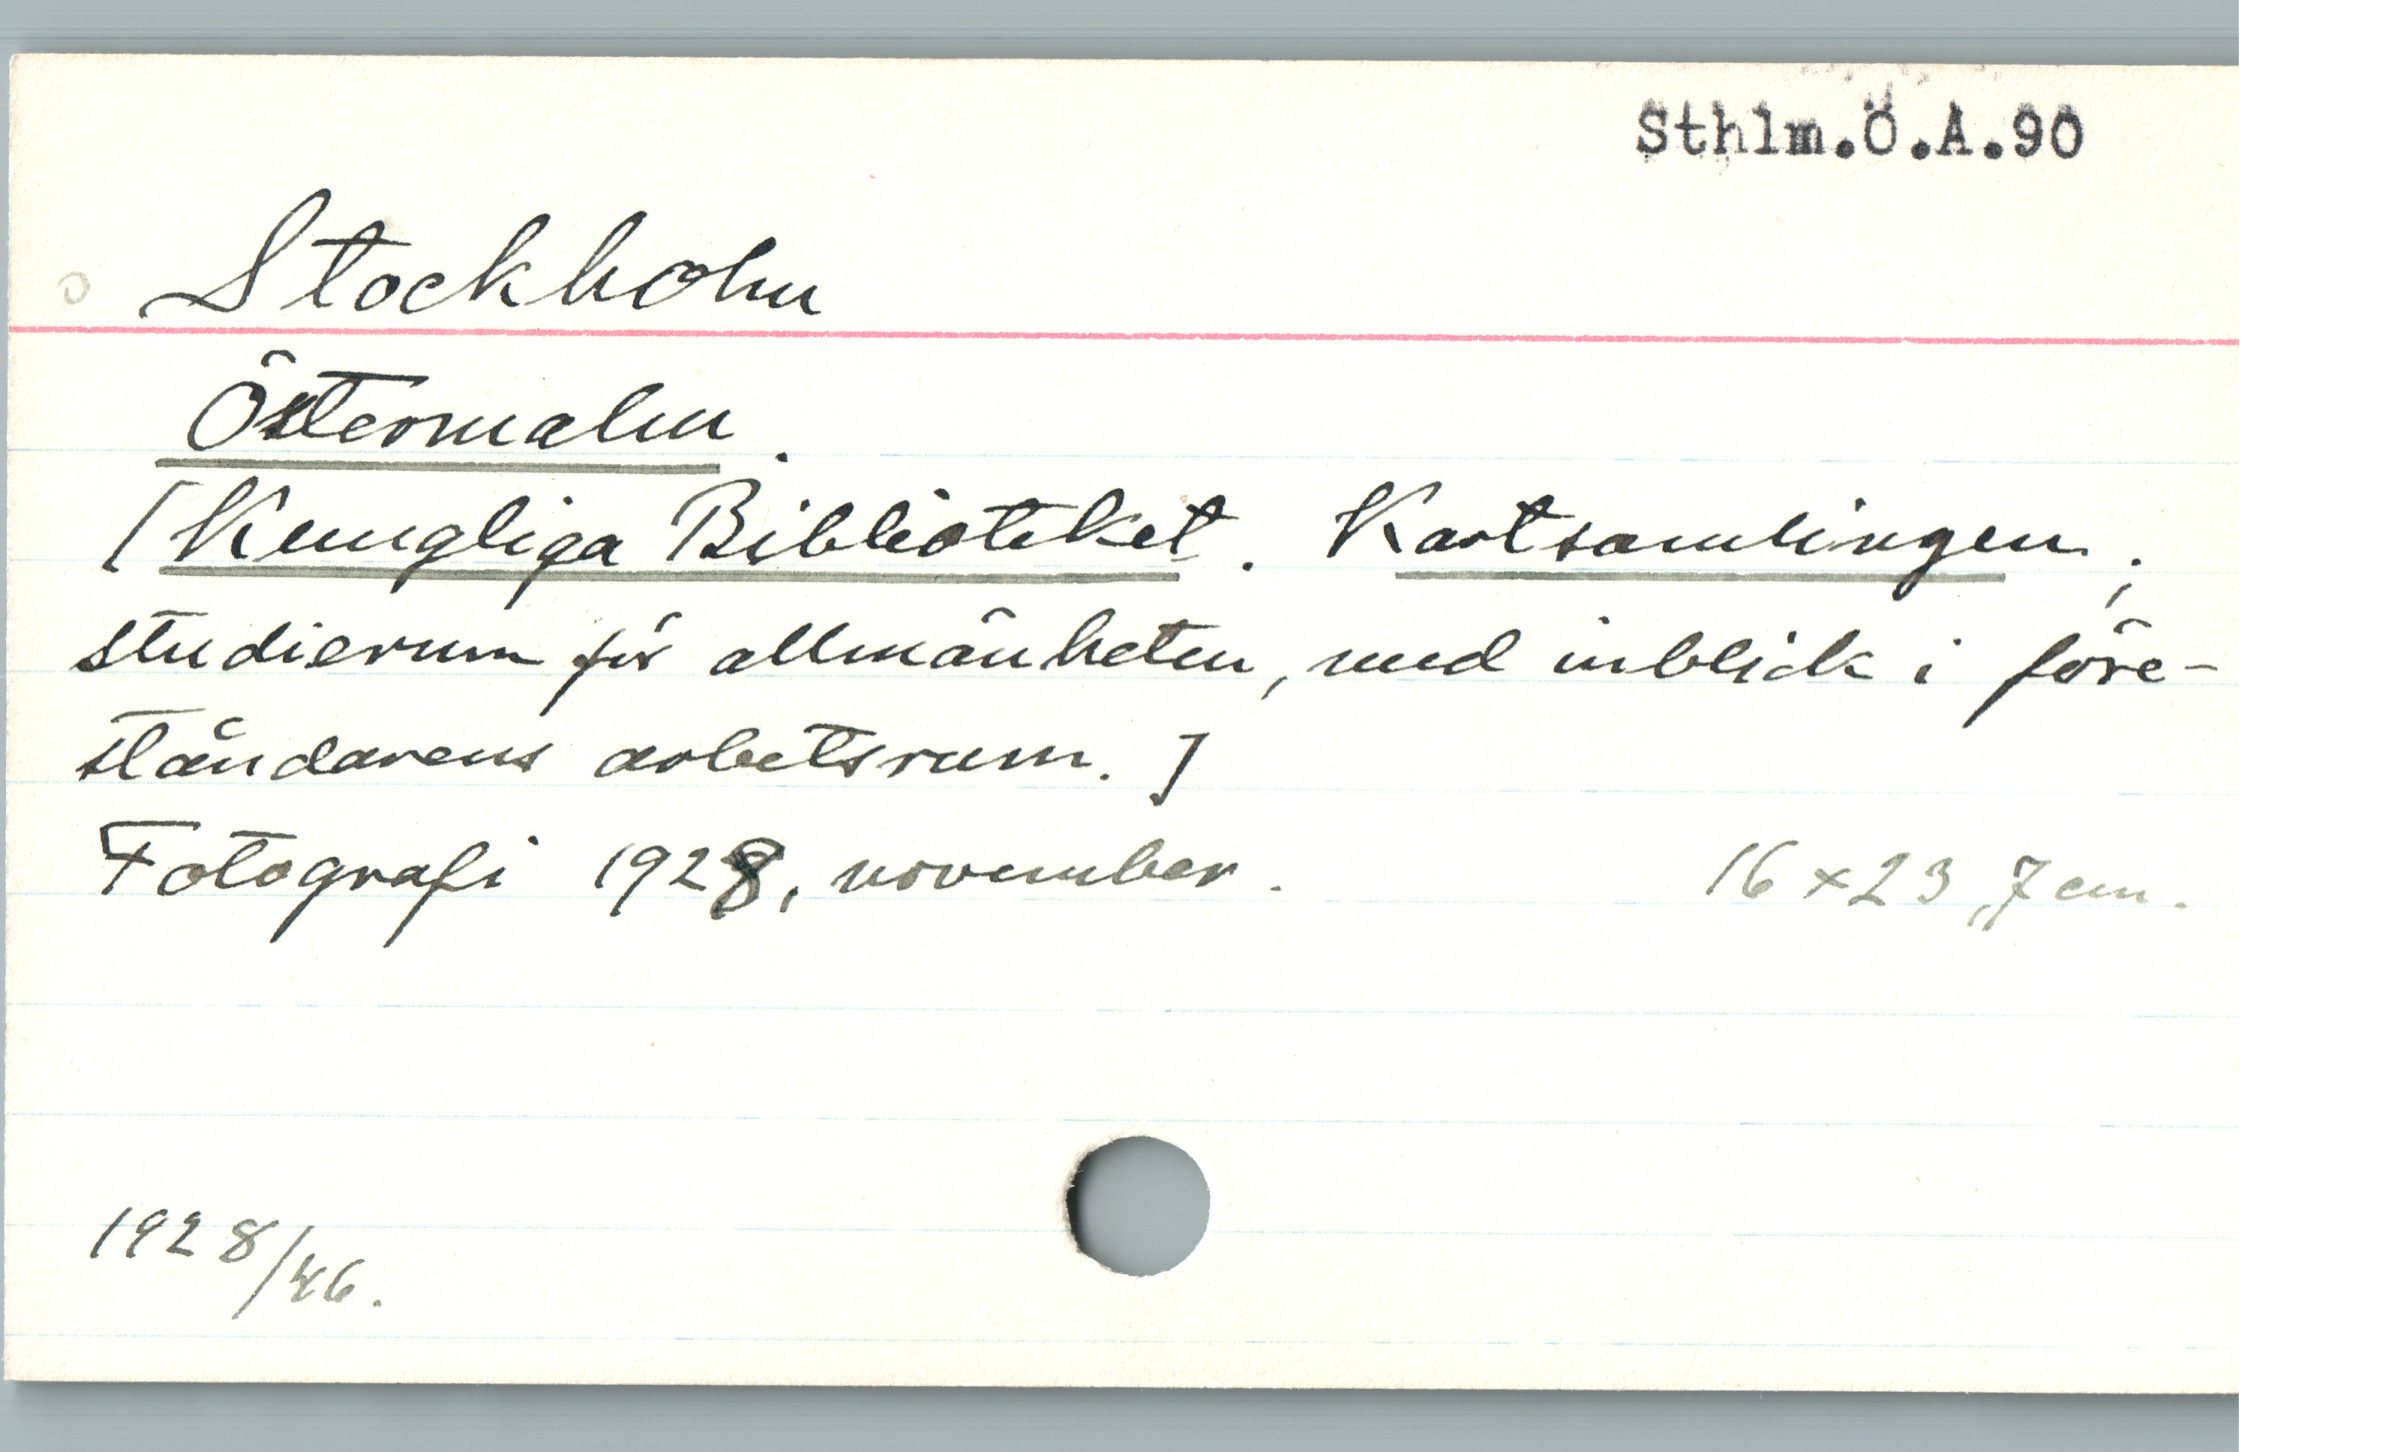 Sthlm.Ö.A.90
Stockholm
Östermalm.
[Kungliga Biblioteket. Kartsamlingen;
studierum för allmänheten, med inblick i före-
ståndarens arbetsrum.]
Fotografi 1928, november. 16 x 23,7 cm.
1928/46.